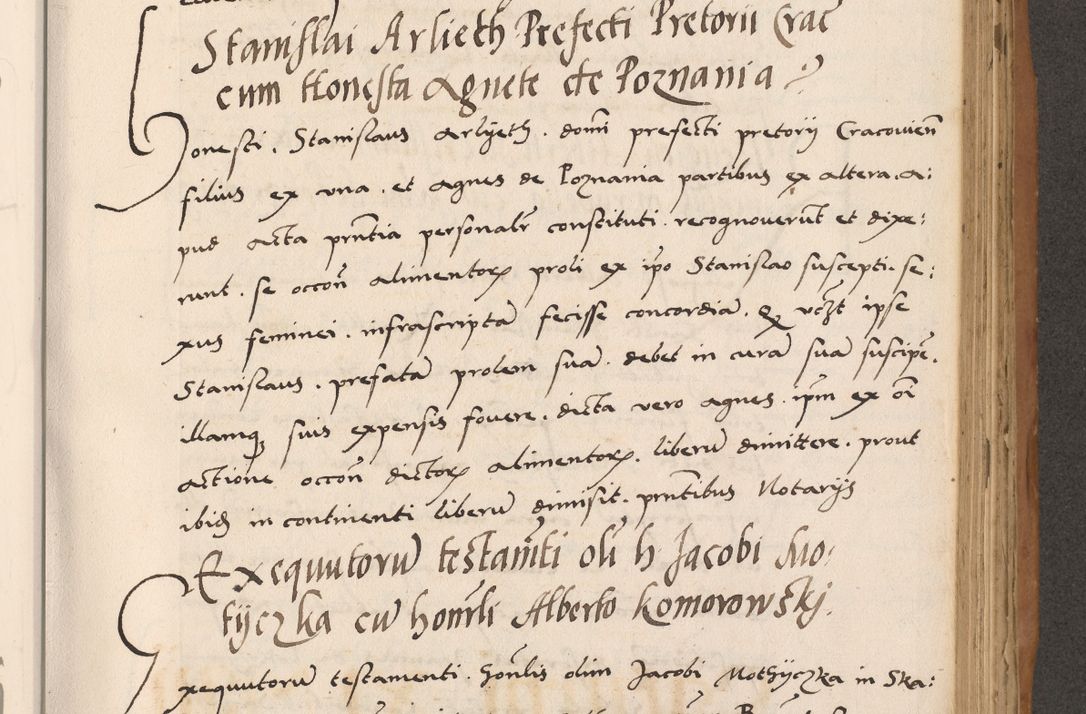 Stanislai Arlieth Prefecti Pretorii Crac
cum Honesta Agnete de Poznania
Honesti . Stanislaus Arlyeth . domi prefecti pretorij Cracovien
filius ex una . et Agnes de Poznania partibus ex altera . a:
pud acta pntia personalr constituti . recognoverut et dixe:
runt . se occon alimentor proli ex ipo Stanislao suscepti . se:
xus feminei . infrascripta fecisse concordia . q uczt ipse
Stanislaus . prefata prolem sua . debet in cura sua suscipe .
illamq suis expensis fovere . dicta vero Agnes . ipm ex oi
actione occon dictor alimentor . liberu dimittere . prout
ibid in continenti liberu dimisit . pntibus Notarijs
Exequutoru testamti oli h Jacobi No:
tijczka cu honrli Alberto Komorowskj .
Exequutoru testamenti . honlis olim Jacobi Nothyczka in Ska: